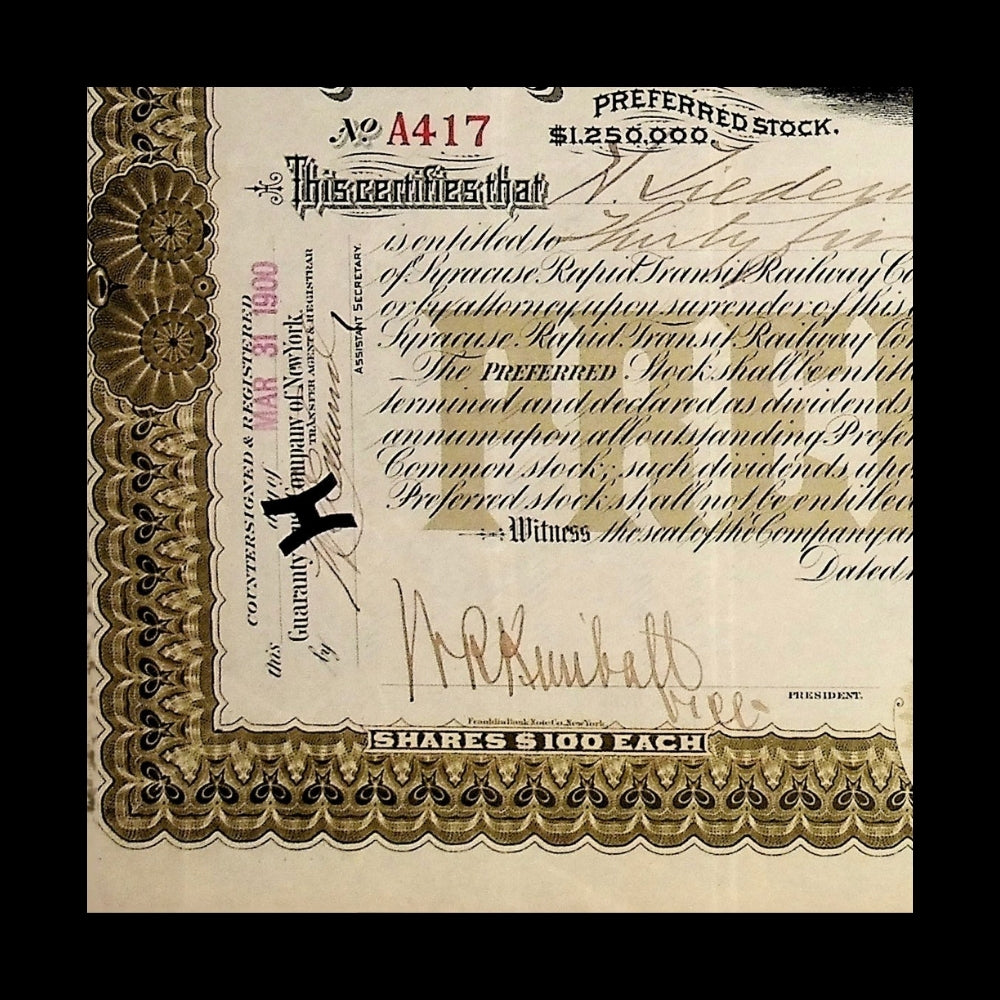 PREFERRED STOCK.
No A417
$1,250,000.
This certifies that N.
is entitled to Thirty
of Syracuse Rapid Transit Railway Co
or by attorney upon surrender of this
Syracuse Rapid Transit Railway Co
The PREFERRED Stock shall be entitl
termined and declared as dividends
annum upon all outstanding Prefer
Common stock; such dividends upo
Preferred stock shall not be entitled
Witness the seal of the Company a
Dated
COUNTERSIGNED & REGISTERED
this day of MAR 31 1900
Guaranty Company of New York
TRANSFER AGENT & REGISTRAR
by
ASSISTANT SECRETARY.
W R Kimball
Vice-
PRESIDENT.
Franklin Bank Note Co. New York.
SHARES $100 EACH